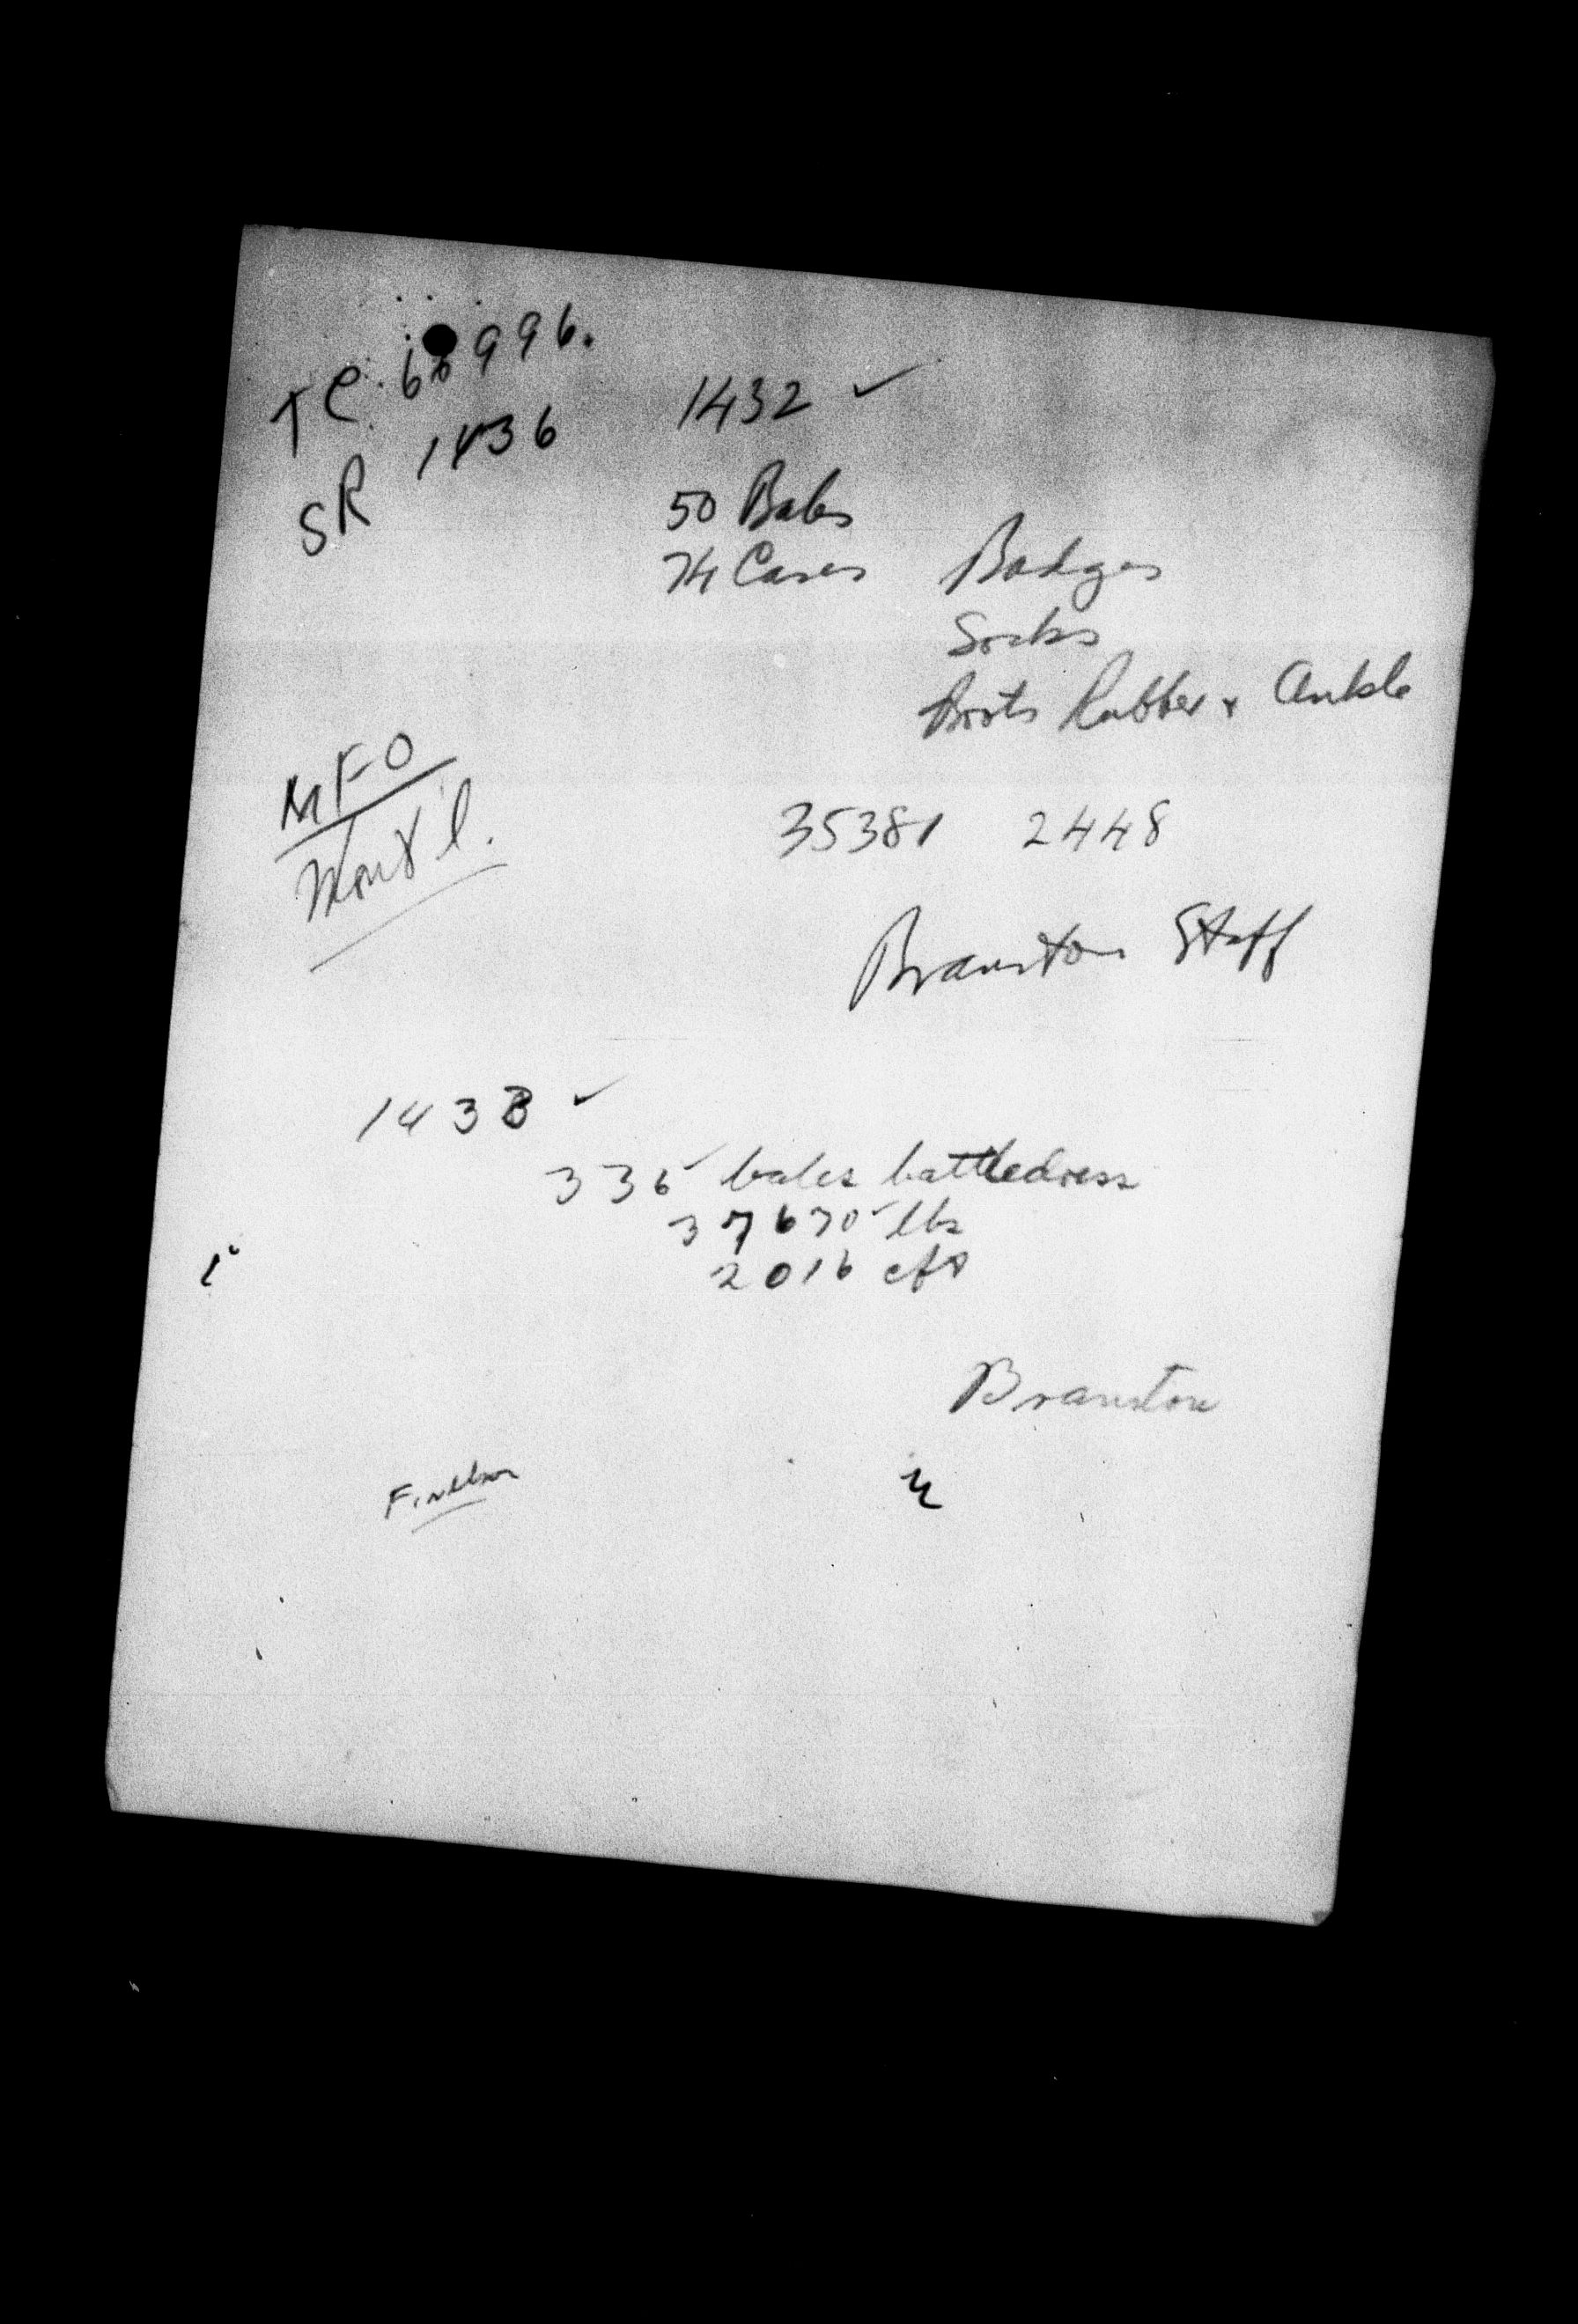 TC. 68996.
SR 1436
1432 ✓
50 Bales
74 Cases Badges
Socks
Boots Rubber & Ankle
MFO
Mont'l.
35381 2448
Branston Staff
1433 ✓
335 bales battledress
37670 lbs
2016 cft
Branston